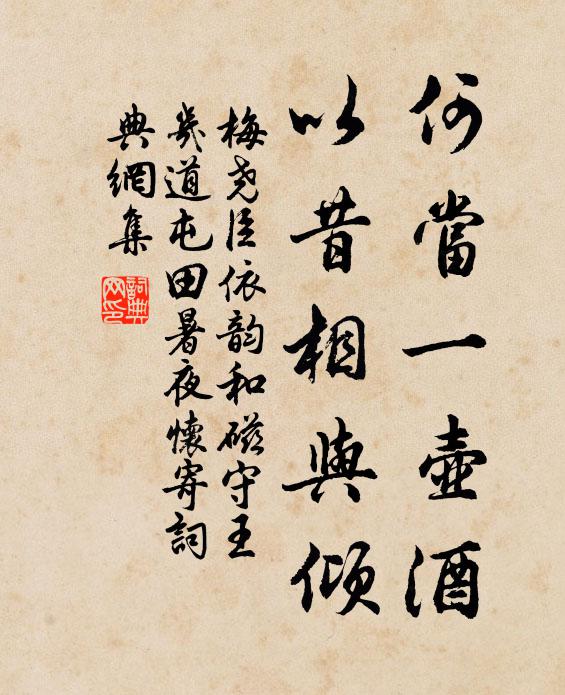 何當一壺酒
以昔相與傾
梅堯臣依韵和磁守王
幾道屯田暑夜懷寄詞
典網集
詞典網印